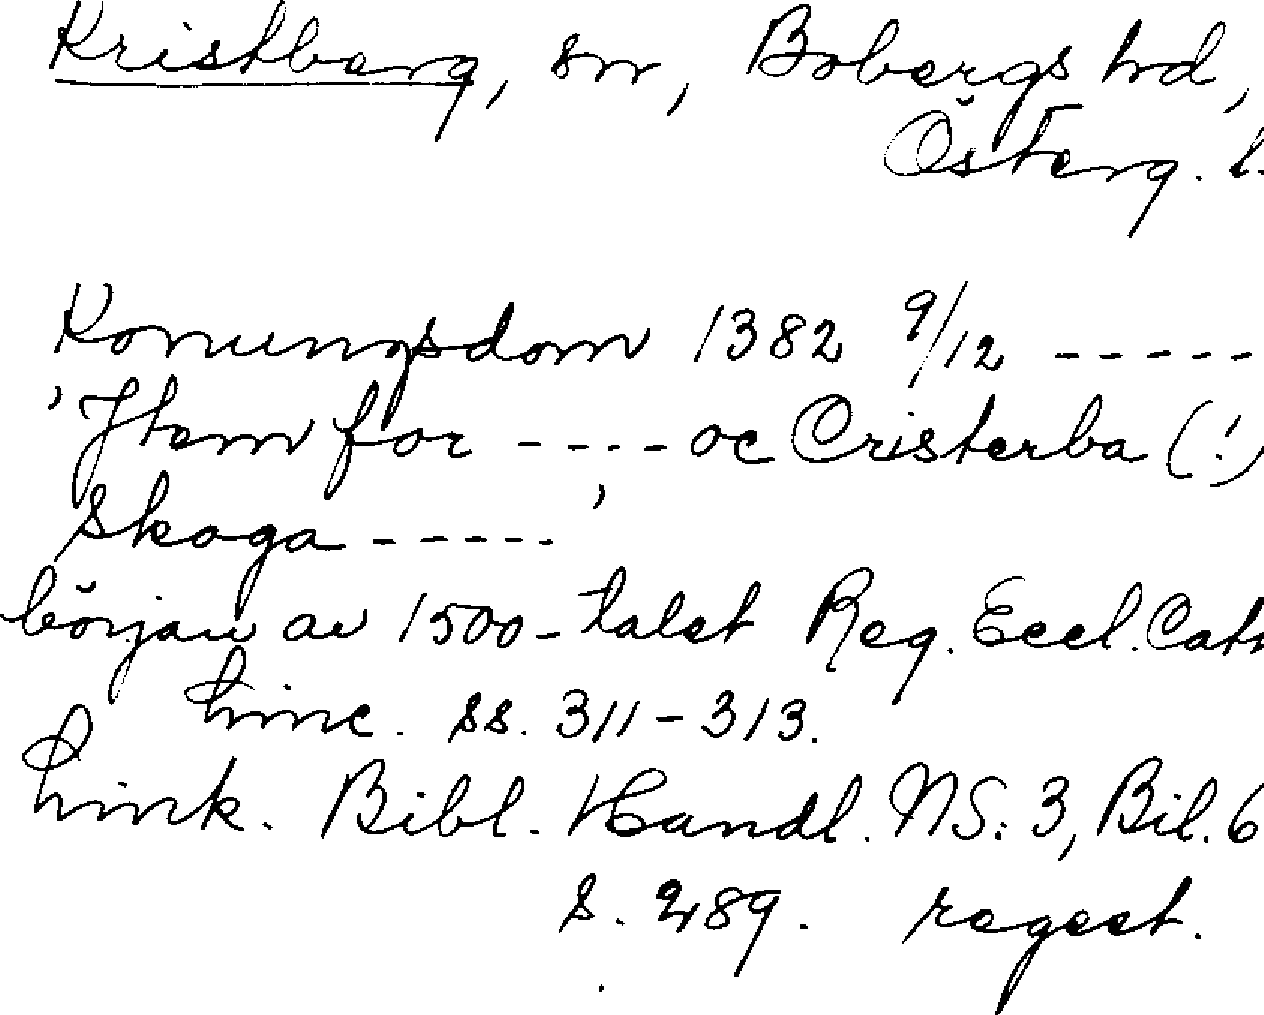 Kristberg, sn, Bobergs hd,
Österg. l.
Konungsdom 1382 9/12 -----
'Jtem for ---- oc Cristerba (!)
skoga -----'
början av 1500-talet Reg. Eccl. Cath
Linc. ss. 311-313.
Link. Bibl. Handl. NS: 3, Bil. 6
s. 289. regest.